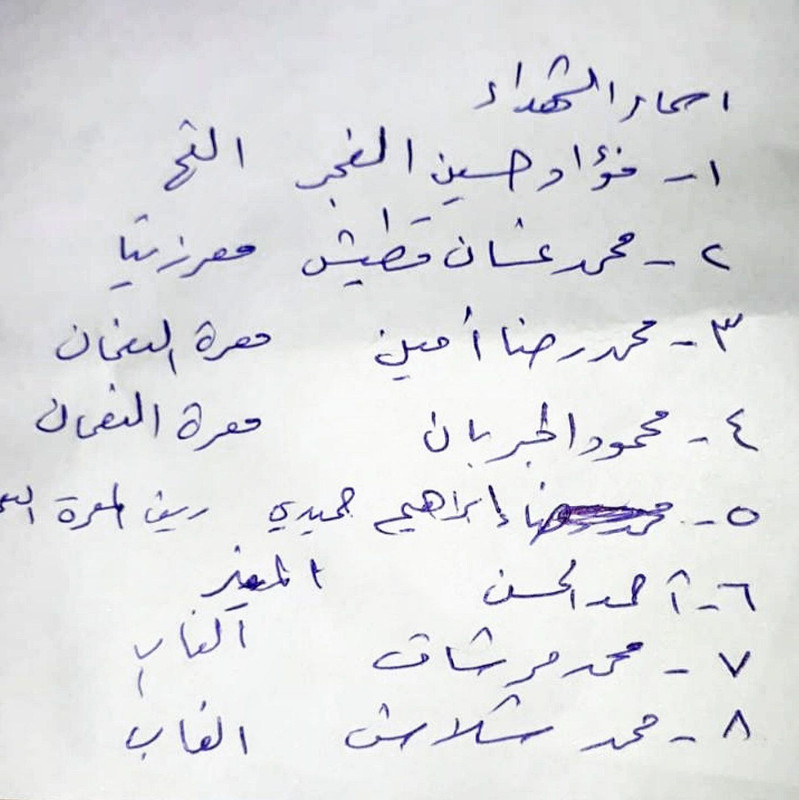 اسماء الشهداء
١- فؤاد حسين الفجر التح
٢- محمد غسان قطيش معرزيتا
٣- محمد رضا أمين معرة النعمان
٤- محمود الجربان معرة النعمان
٥- إبراهيم حميدي ريف المعرة
٦- أحمد الحسن المغير
٧- محمد مرشاق الغاب
٨- محمد شلاش الغاب